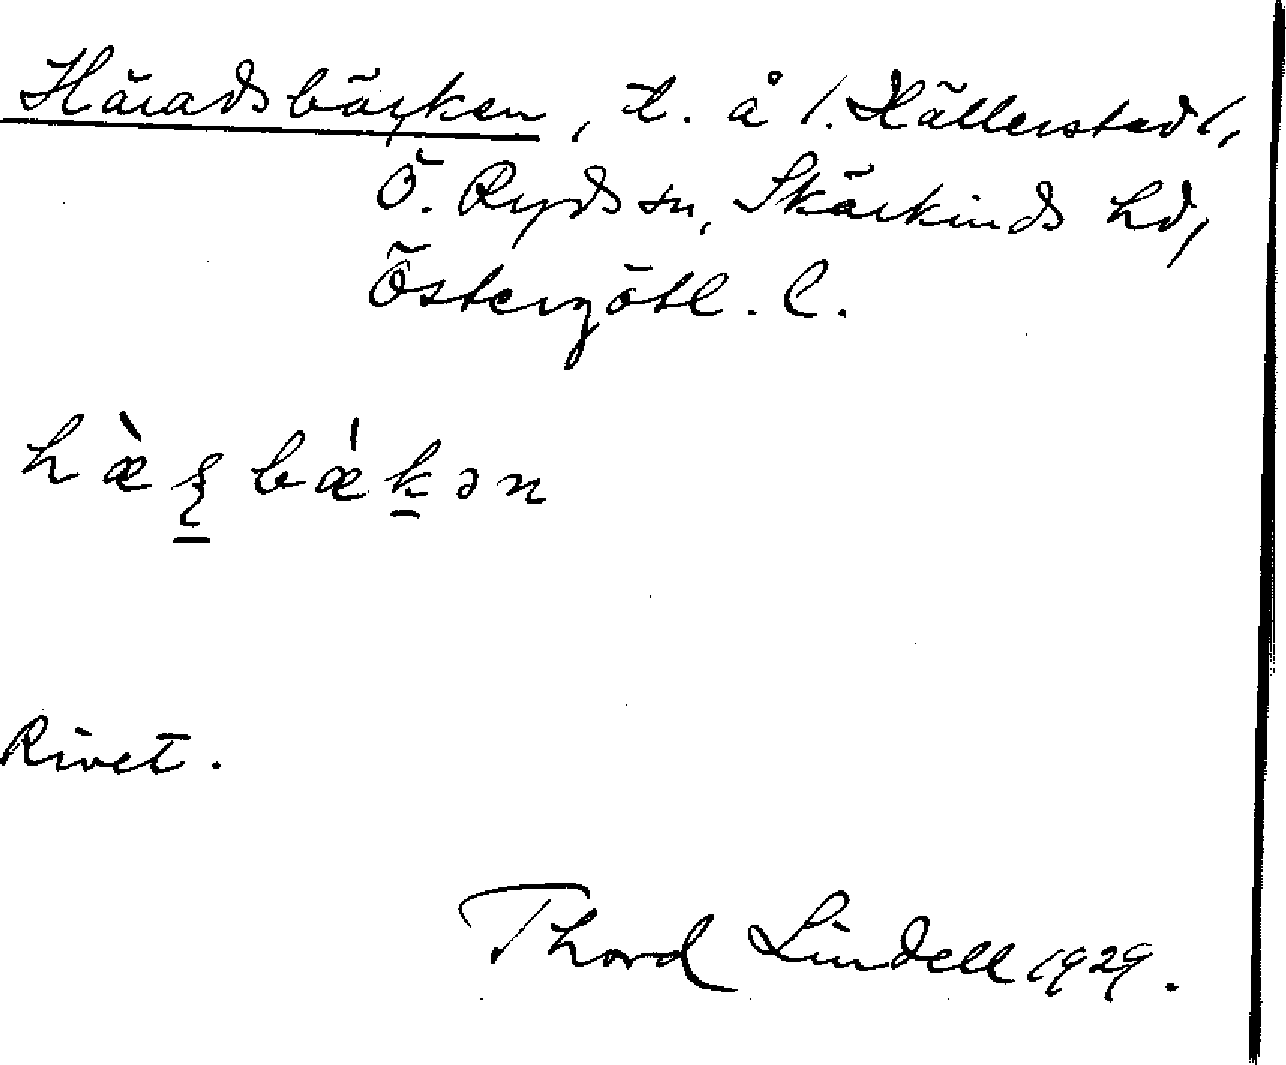 Häradsbäcken, t. å /. Källerstad/,
Ö. Ryds sn, Skärkinds hd,
Östergötl. l.
hæ̀ʂbǽkən
Rivet.
Thord Lindell 1929.